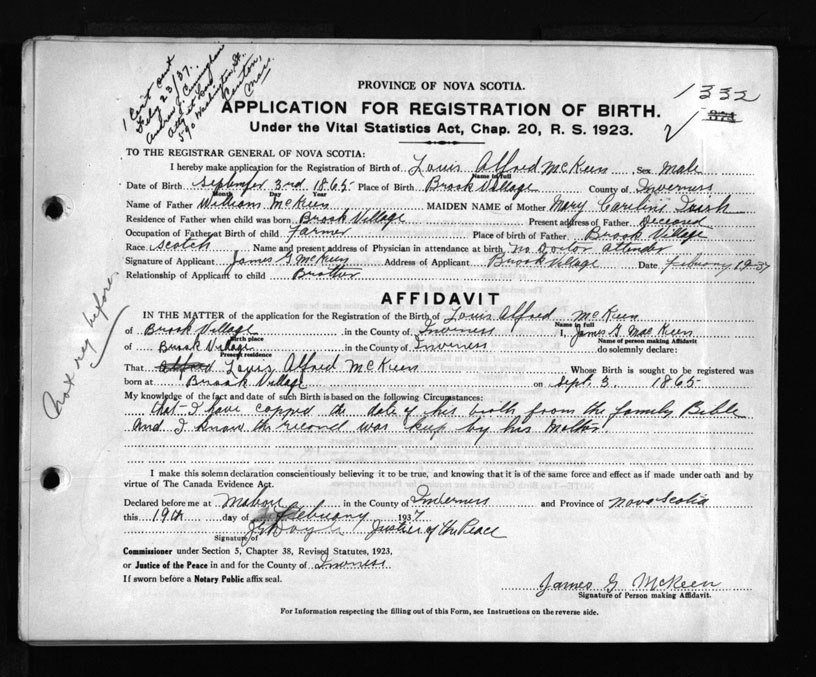 1 Cert out
Feb 23/37.
Andrew J.
Atty at Law
590 Washington St.
Canton,
Mass.
PROVINCE OF NOVA SCOTIA.
1332
APPLICATION FOR REGISTRATION OF BIRTH.
Under the Vital Statistics Act, Chap. 20, R. S. 1923.
TO THE REGISTRAR GENERAL OF NOVA SCOTIA:
I hereby make application for the Registration of Birth of Louis Alfred McKeen Sex male
Name in full
Date of Birth September 3rd 1865 Place of Birth Brook Village County of Inverness
Month Day Year
Name of Father William McKeen MAIDEN NAME of Mother Mary Caroline
Residence of Father when child was born Brook Village Present address of Father Deceased
Occupation of Father at Birth of child Farmer Place of birth of Father Brook Village
Race Scotch Name and present address of Physician in attendance at birth no Doctor attended
Signature of Applicant James G McKeen Address of Applicant Brook Village Date February 19-37
Relationship of Applicant to child Brother
Not reg before
AFFIDAVIT
IN THE MATTER of the application for the Registration of the Birth of Louis Alfred McKeen
Name in full
of Brook Village in the County of Inverness I, James G. MacKeen
Birth place Name of person making Affidavit
of Brook Village in the County of Inverness do solemnly declare:
Present residence
That Alfred Louis Alfred McKeen Whose Birth is sought to be registered was
born at Brook Village on Sept. 3. 1865
My knowledge of the fact and date of such Birth is based on the following Circumstances:
that I have copped the date of his birth from the family Bible
and I know the record was keep by his Mother.
I make this solemn declaration conscientiously believing it to be true, and knowing that it is of the same force and effect as if made under oath and by
virtue of The Canada Evidence Act.
Declared before me at Mabou in the County of Inverness and Province of Nova Scotia
this 19th day of February 1937
Justice of the Peace
Signature of
Commissioner under Section 5, Chapter 38, Revised Statutes, 1923,
or Justice of the Peace in and for the County of Inverness
If sworn before a Notary Public affix seal.
James G. McKeen
Signature of Person making Affidavit.
For Information respecting the filling out of this Form, see Instructions on the reverse side.